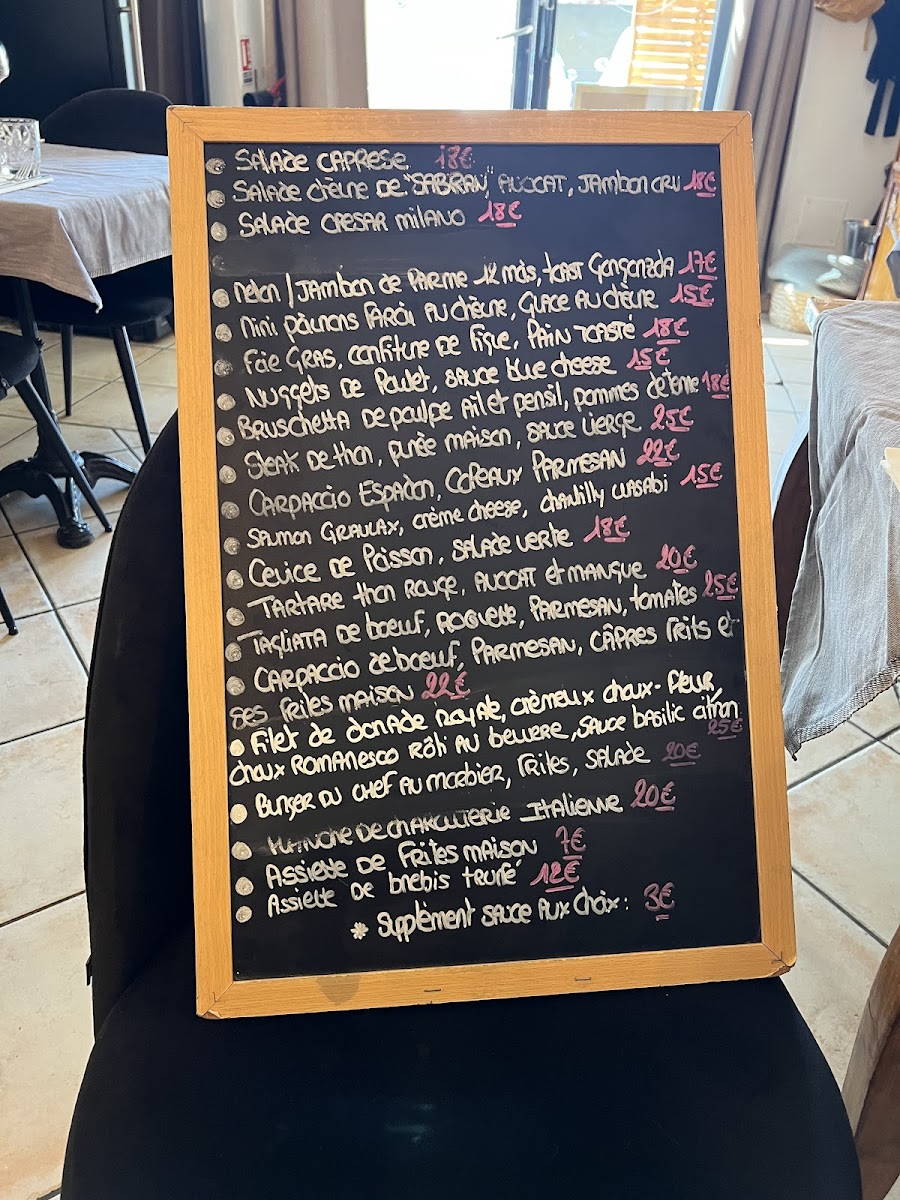 SALADE CAPRESE 18€
SALADE CHÈVRE DE "SABRAN", AVOCAT, JAMBON CRU 18€
SALADE CAESAR MILANO 18€
MELON / JAMBON DE PARME 12 MOIS, TOAST GORGONZOLA 17€
MINI POIVRONS FARCI AU CHÈVRE, GLACE AU CHÈVRE 15€
FOIE GRAS, CONFITURE DE FIGUE, PAIN TOASTÉ 18€
NUGGETS DE POULET, SAUCE BLUE CHEESE 15€
BRUSCHETTA DE POULPE AIL ET PERSIL, POMMES DE TERRE 18€
STEAK DE THON, PURÉE MAISON, SAUCE VIERGE 25€
CARPACCIO ESPADON, COPEAUX PARMESAN 22€
SAUMON GRAVLAX, CRÈME CHEESE, CHANTILLY WASABI 15€
CEVICE DE POISSON, SALADE VERTE 18€
TARTARE THON ROUGE, AVOCAT ET MANGUE 20€
TAGLIATA DE BOEUF, ROQUETTE, PARMESAN, TOMATES 25€
CARPACCIO DE BOEUF, PARMESAN, CÂPRES FRITS ET
SES FRITES MAISON 22€
FILET DE DORADE ROYALE, CRÉMEUX CHOUX-FLEUR,
CHOUX ROMANESCO RÔTI AU BEURRE, SAUCE BASILIC CITRON
25€
BURGER DU CHEF AU MORBIER, FRITES, SALADE 20€
PLANCHE DE CHARCUTERIE ITALIENNE 20€
ASSIETTE DE FRITES MAISON 7€
ASSIETTE DE BREBIS TRUFFÉ 12€
* SUPPLÉMENT SAUCE AUX CHOIX : 3€